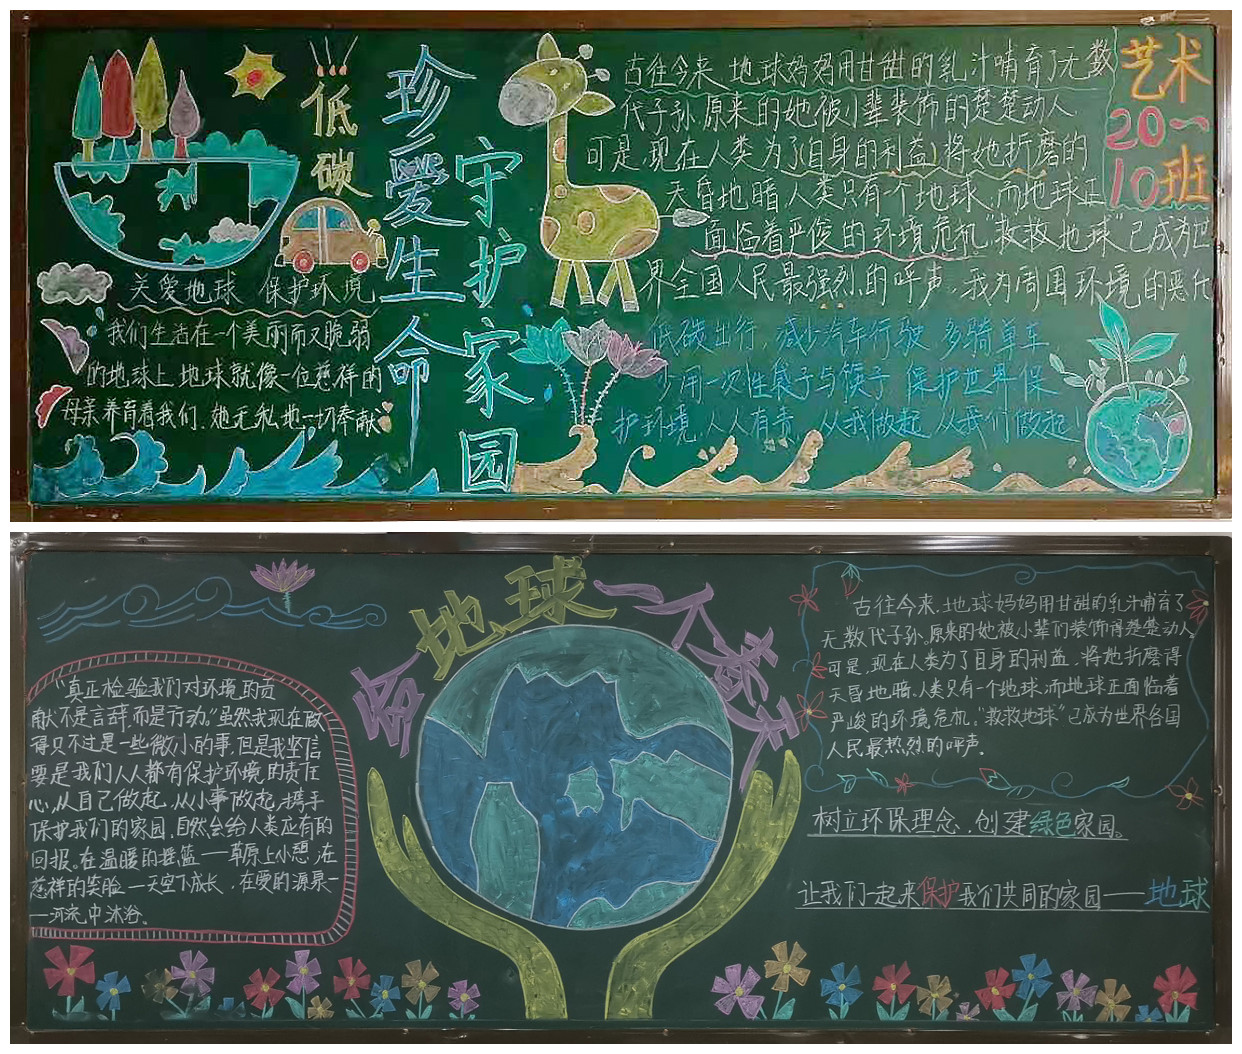 低碳
珍爱生命
守护家园
艺术
20一
10班
关爱地球 保护环境
我们生活在一个美丽而又脆弱
的地球上,地球就像一位慈祥的
母亲养育着我们,她无私地一切奉献
古往今来,地球妈妈用甘甜的乳汁哺育了无数
代子孙原来的她被小辈装饰的楚楚动人
可是,现在人类为了(自身的利益)将她折磨的
天昏地暗人类只有一个地球,而地球正
面临着严俊的环境危机“救救地球”已成为世
界全国人民最强烈的呼声,我为周围环境的恶化
低碳出行,减少汽车行驶 多骑单车
少用一次性袋子与筷子 保护世界保
护环境,人人有责 从我做起 从我们做起!
给地球一个春天
“真正检验我们对环境的贡
献不是言辞,而是行动。”虽然我现在做
得只不过是一些微小的事,但是我坚信
要是我们人人都有保护环境的责任
心,从自己做起,从小事做起,携手
保护我们的家园,自然会给人类应有的
回报。在温暖的摇篮——草原上小憩,在
慈祥的笑脸—天空下成长,在爱的源泉—
—河流中沐浴。
古往今来,地球妈妈用甘甜的乳汁哺育了
无数代子孙,原来的她被小辈们装饰得楚楚动人,
可是,现在人类为了自身的利益,将她折磨得
天昏地暗,人类只有一个地球,而地球正面临着
严峻的环境危机,“救救地球”已成为世界各国
人民最热烈的呼声。
树立环保理念,创建绿色家园。
让我们一起来保护我们共同的家园——地球